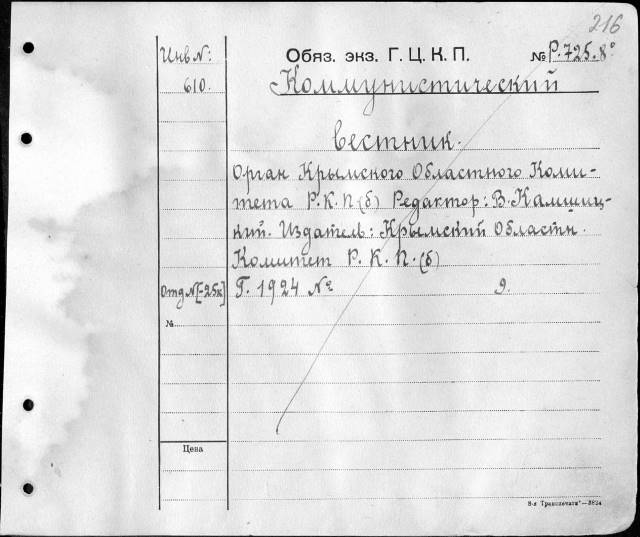 216
Инв №:
Обяз. экз. Г. Ц. К. П.
№ Р.725.8°
610.
Коммунистический
вестник.
Орган Крымского Областного Коми-
тета Р.К.П(б) Редактор: В.Камшиц-
кий. Издатель: Крымский Областн.
Комитет Р. К. П. (б)
Отд №[-25к]
Г. 1924 №
9.
№
Цена
8-я Транспечати"—3824